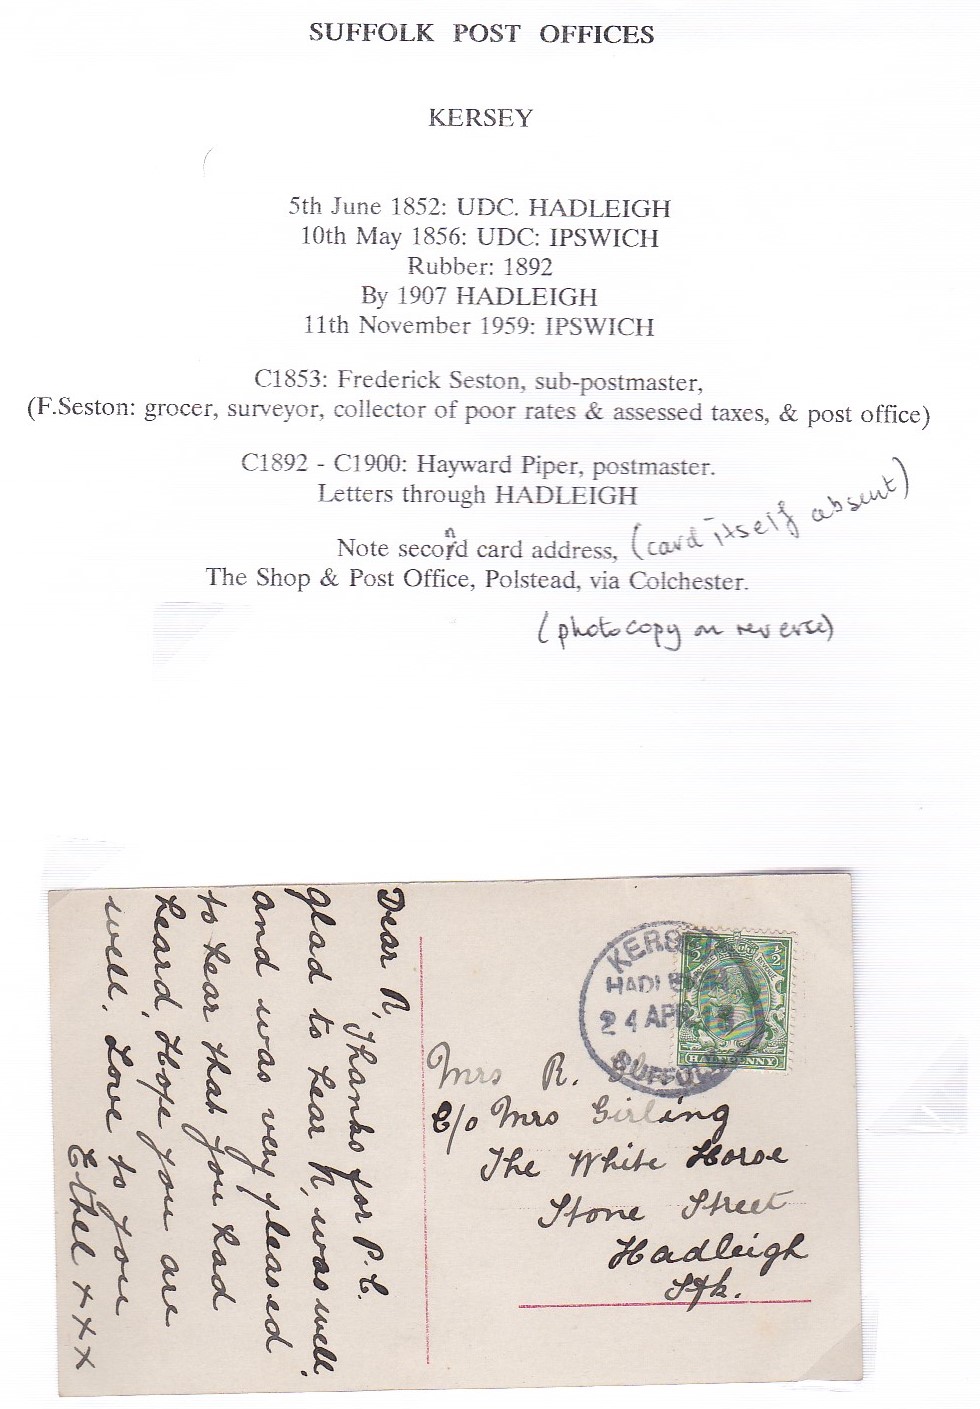 SUFFOLK POST OFFICES
KERSEY
5th June 1852: UDC. HADLEIGH
10th May 1856: UDC: IPSWICH
Rubber: 1892
By 1907 HADLEIGH
11th November 1959: IPSWICH
C1853: Frederick Seston, sub-postmaster,
(F.Seston: grocer, surveyor, collector of poor rates & assessed taxes, & post office)
C1892 - C1900: Hayward Piper, postmaster.
Letters through HADLEIGH
Note second card address, (card itself absent)
The Shop & Post Office, Polstead, via Colchester.
(photocopy on reverse)
Dear R,
Thanks for P.C.
glad to hear N, was well,
and was very pleased
to hear that you had
heard, Hope you are
well, Love to you
Ethel x x x
KERSEY
HADLEIGH
24 APR 18
SUFFOLK
HALFPENNY
Mrs R.
C/o Mrs Girling
The White Horse
Stone Street
Hadleigh
Sfk.